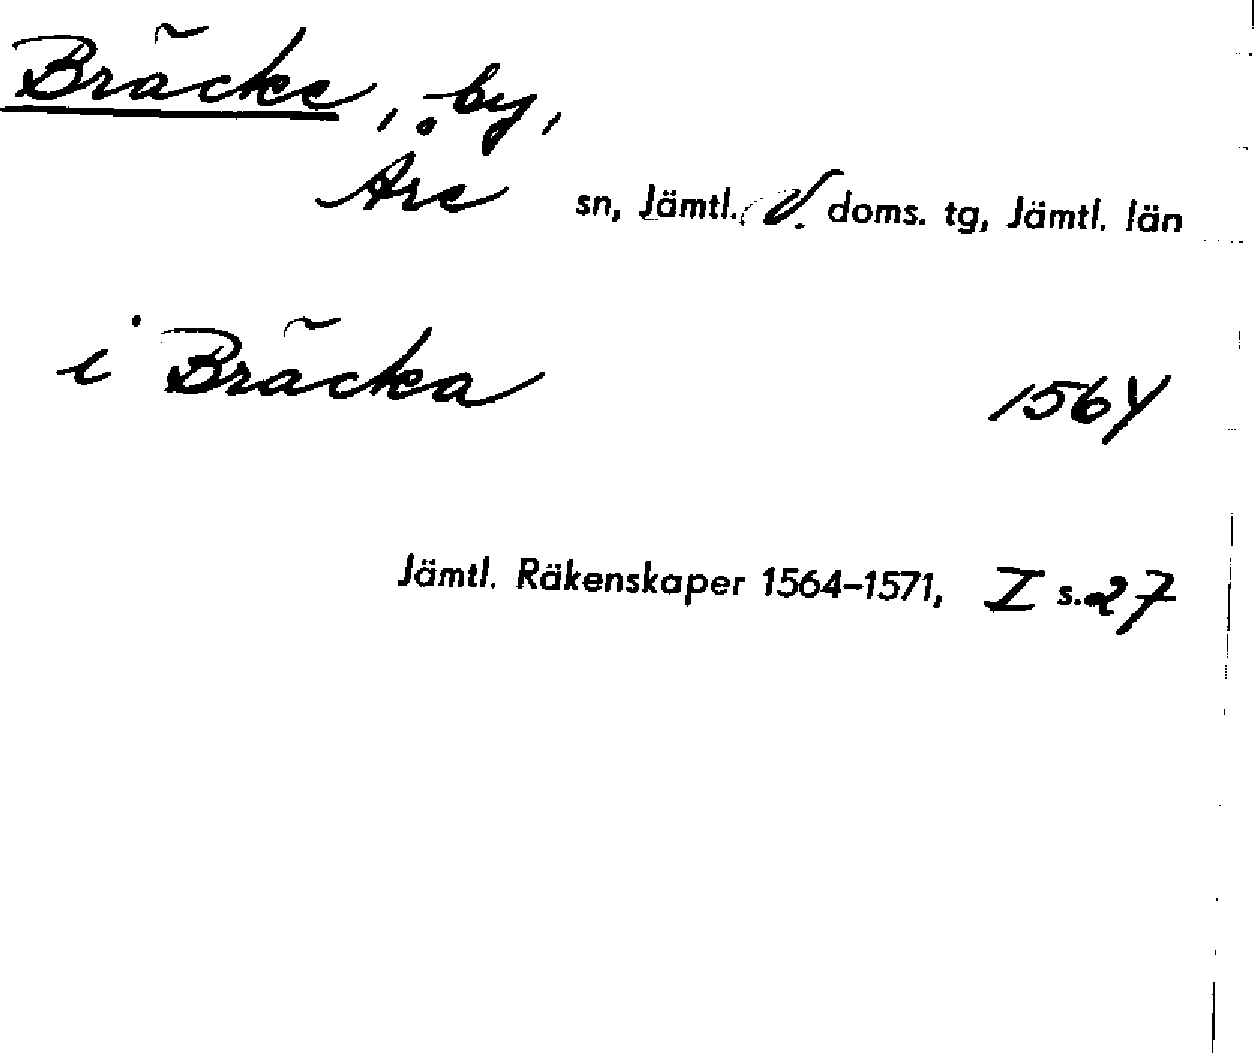 Bräcke, by,
Åre sn, Jämtl. v. doms. tg, Jämtl. län
i Bräcka 1564
Jämtl. Räkenskaper 1564–1571, I s. 27